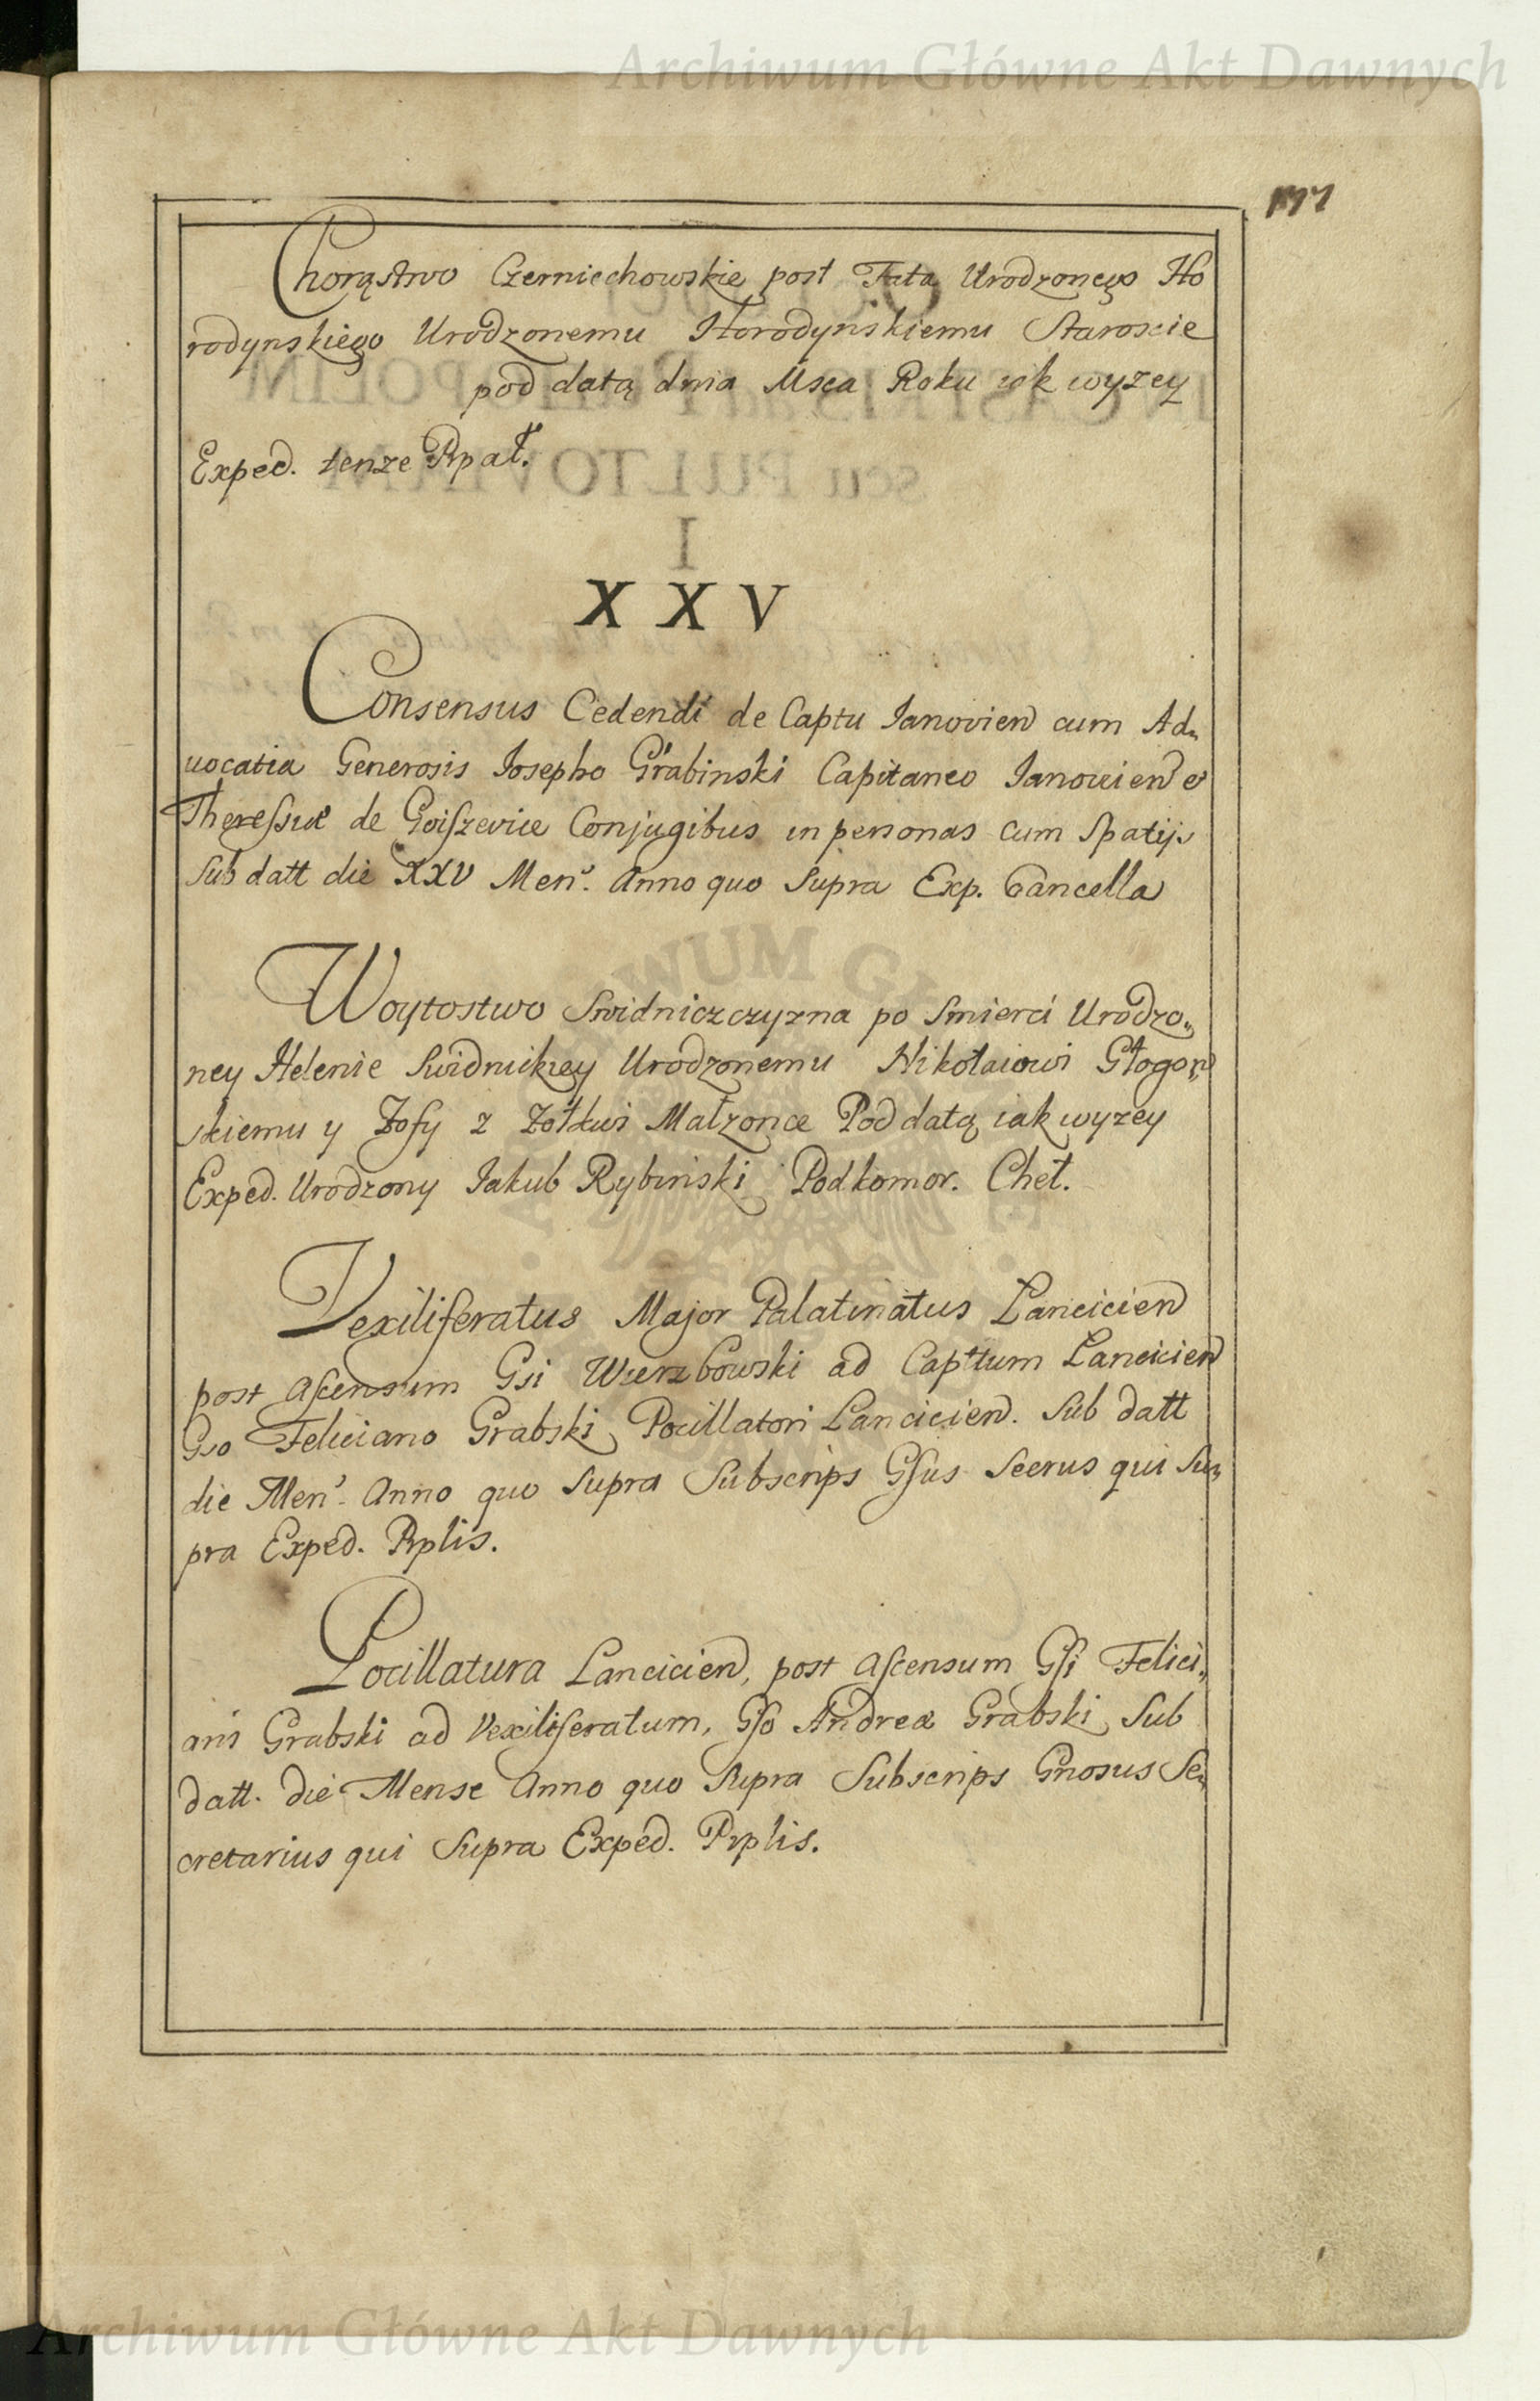 Archiwum Główne Akt Dawnych
Chorąstwo Czerniechowskie post Fata Urodzonego Ho
rodynskiego Urodzonemu Horodynskiemu Staroscie
pod datą dnia Msca Roku iak wyzey
Exped. tenze Rpał.
X X V
Consensus Cedendi de Captu Ianovien cum Ad„
uocatia Generosis Iosepho Grabinski Capitaneo Ianovien et
de Conjugibus in personas cum Spatijs
Sub datt die XXV Men. Anno quo Supra Exp. Cancella
Woytostwo Swidniczczyzna po Smierci Urodzo„
ney Helenie Swidnickiey Urodzonemu Nikołaiowi Głogow
skiemu y Zofy z Matzonce Pod datą iak wyzey
Exped. Urodzony Iakub Rybinski Podkomor. Cheł.
Vexiliferatus Major Palatinatus Lancicien
post Ascensum Gsi Wierzbowski ad Capttum Lancicien
Gso Feliciano Grabski Pocillatori Lancicien. Sub datt
die Men. Anno quo Supra Subscrips Gsus Secrus qui Su„
pra Exped. Rplis.
Pocillatura Lancicien, post Ascensum Gsi Felici„
ani Grabski ad Vexiliferatum, Gso Andreæ Grabski Sub
datt. die Mense Anno quo Supra Subscrips Gnosus Se„
cretarius qui Supra Exped. Rplis.
Archiwum Główne Akt Dawnych